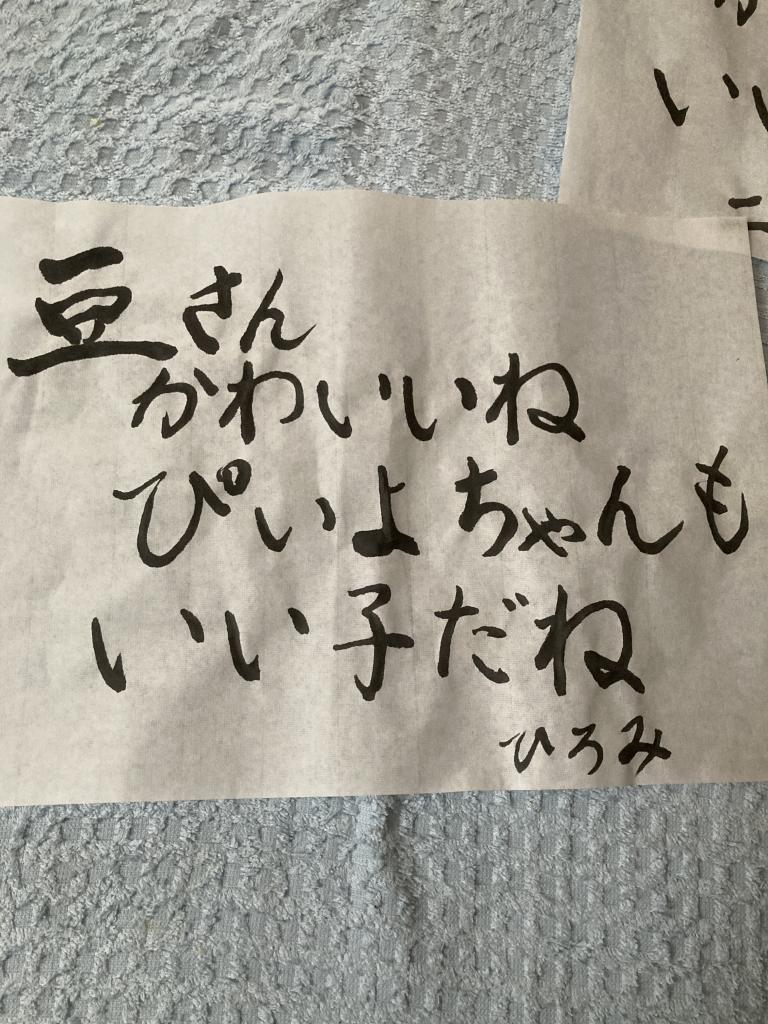 豆さん
かわいいね
ぴぃよちゃんも
いい子だね
ひろみ
いい